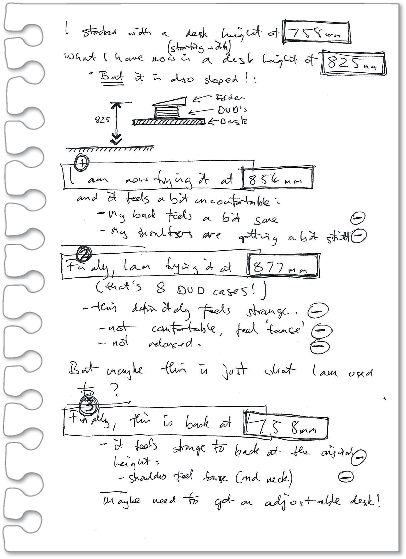 I started with a desk height of 758mm
(starting with)
What I have now is a desk height of 825mm
* But it is also sloped!:
Folder
DVD's
Desk
825
1
I am now trying it at 856mm
and it feels a bit uncomfortable:
- My back feels a bit sore -
- My shoulders are getting a bit stiff -
2
Finally, I am trying it at 877mm
(that's 8 DVD cases!)
- this definitely feels strange.. -
- not comfortable, feel tense -
- not relaxed. -
But maybe this is just what I am used
to ?
3
Finally, this is back at 758mm
- it feels strange to back at the original
height. -
- shoulders feel tense (and neck) -
Maybe need to get an adjustable desk!